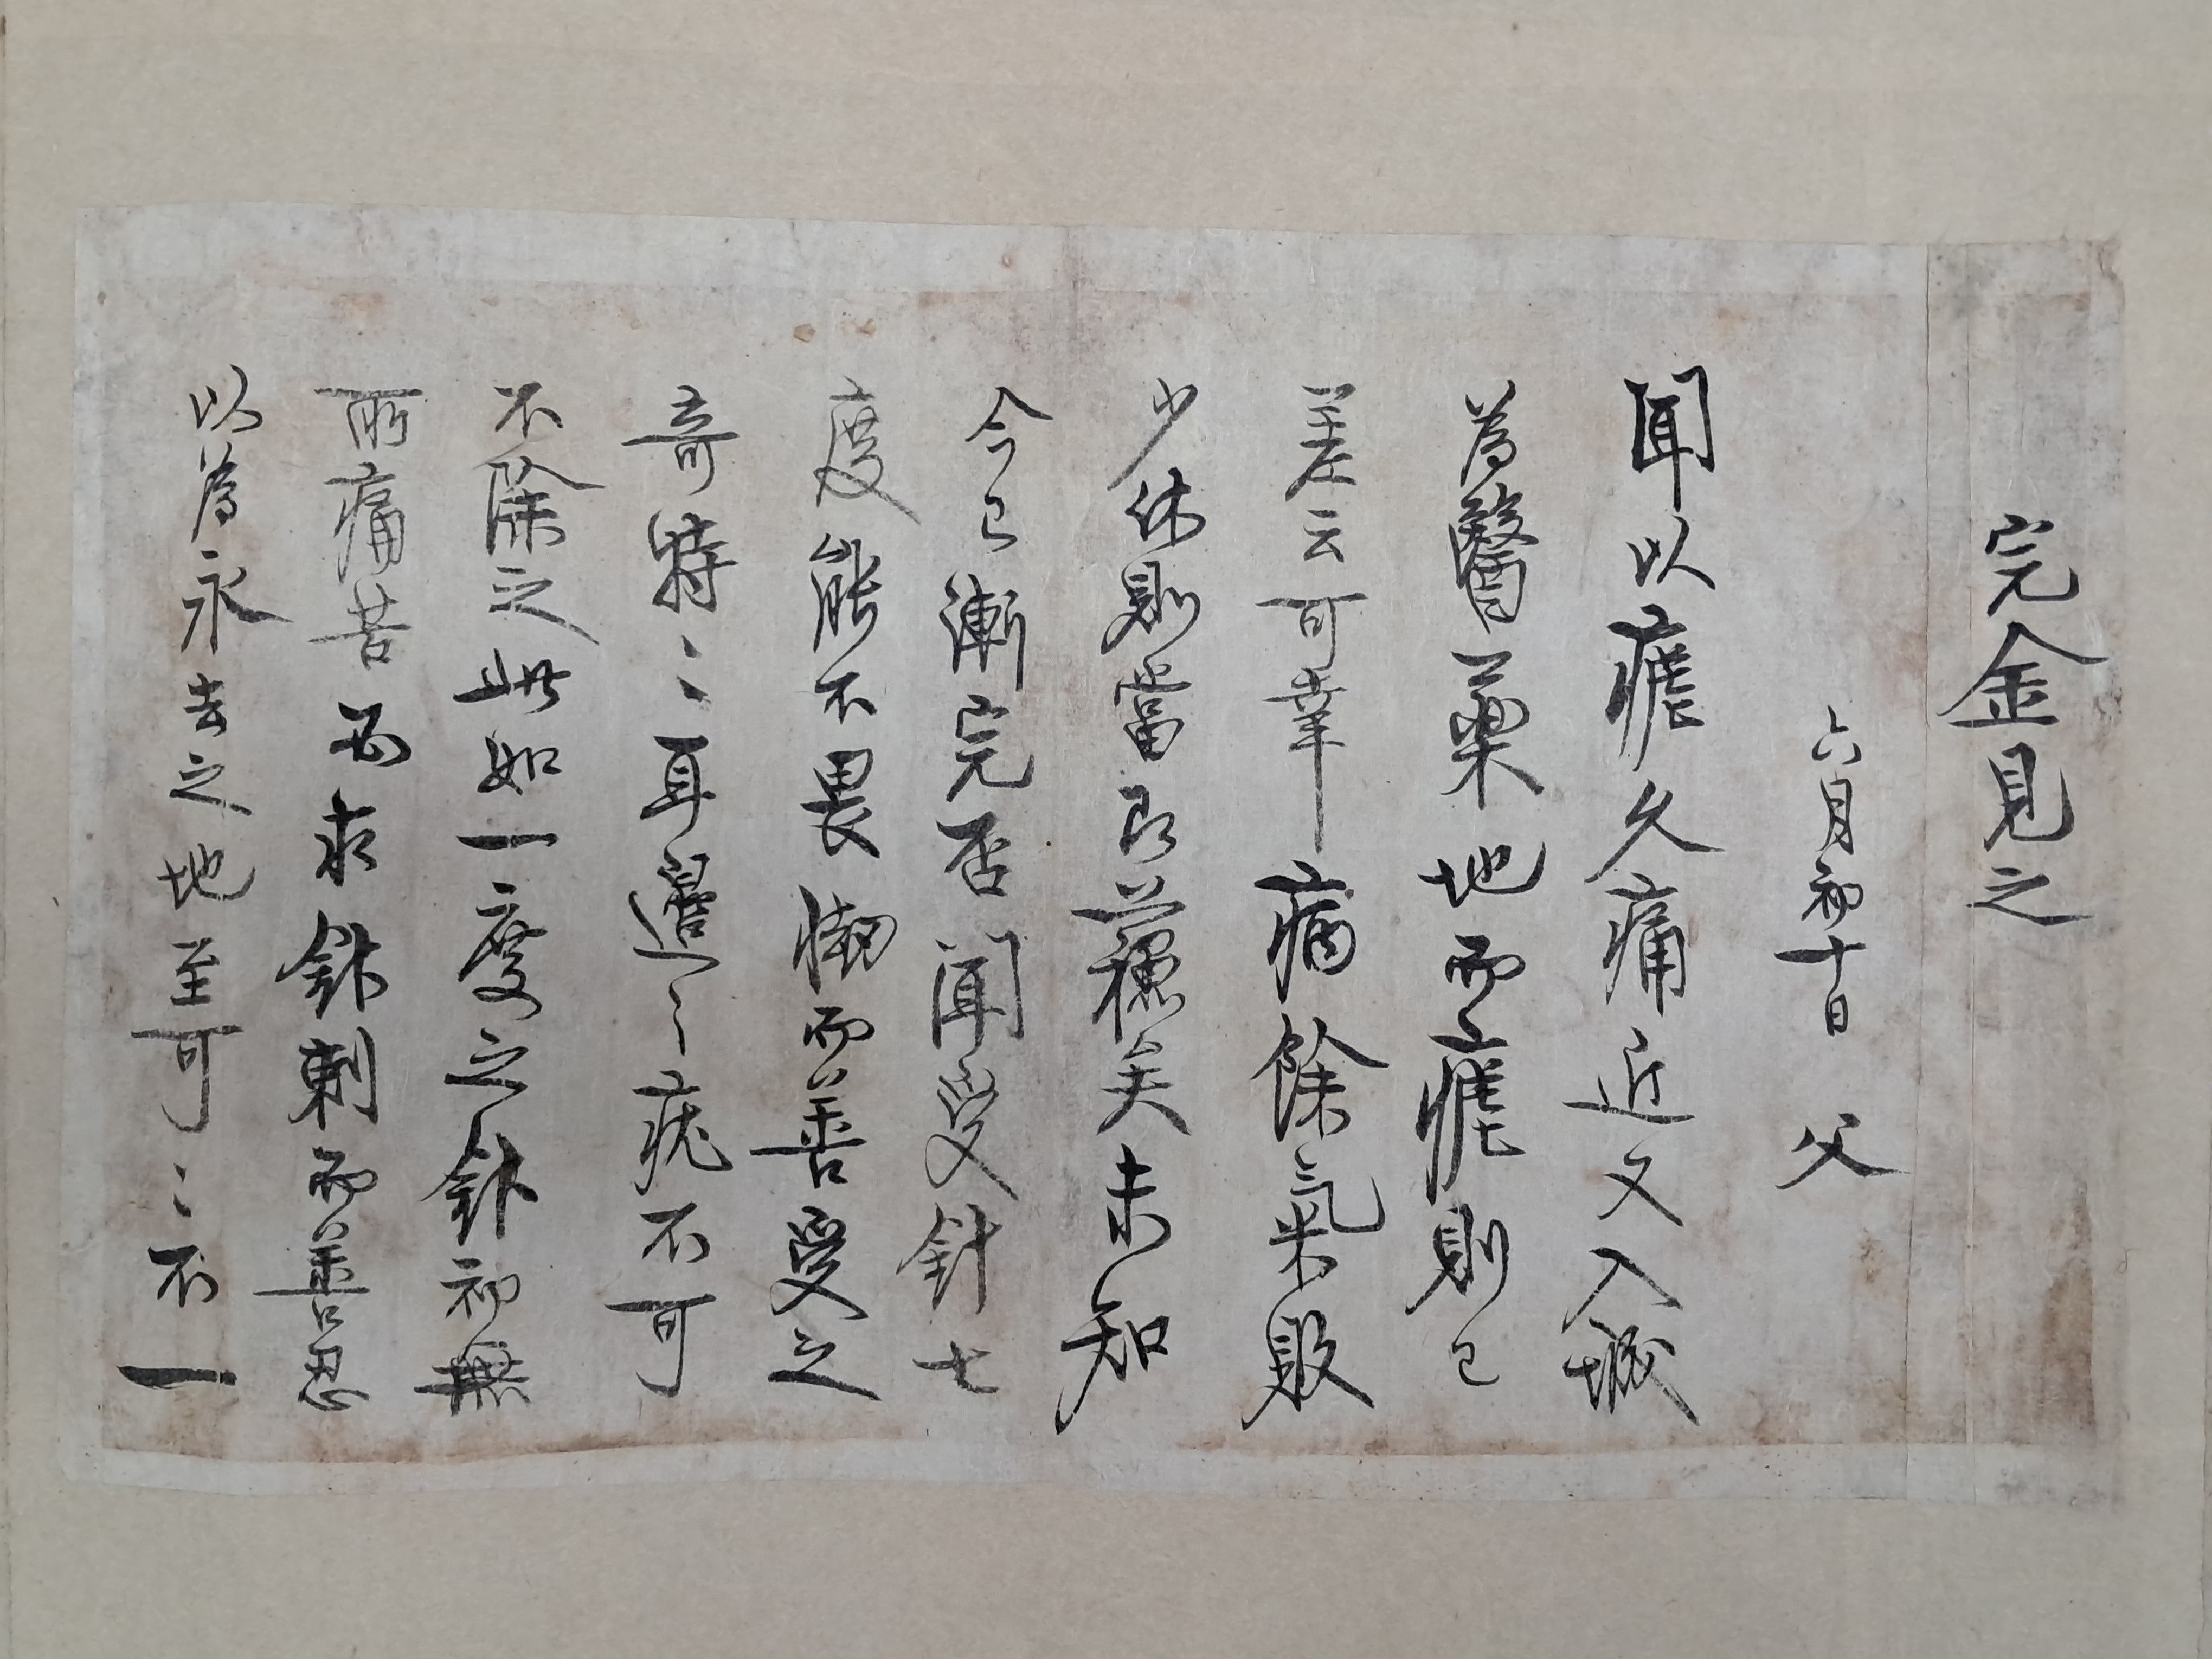 完金見之
六月初十日 父
聞以瘧久痛近又入城
為醫藥地而瘧則已
差云可幸病餘氣敗
少休則當即蘇矣未知
今已漸完否聞受針七
度能不畏懶而善受之
奇特〻耳邊〻疣不可
不除之此如一度之針初無
所痛苦而求針刺而善忍
以為永去之地至可〻不一